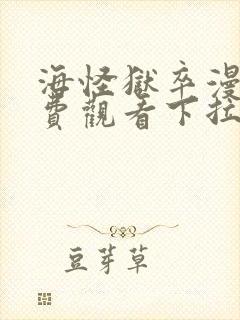 海怪獄卒漫
費觀看下拉
豆芽草